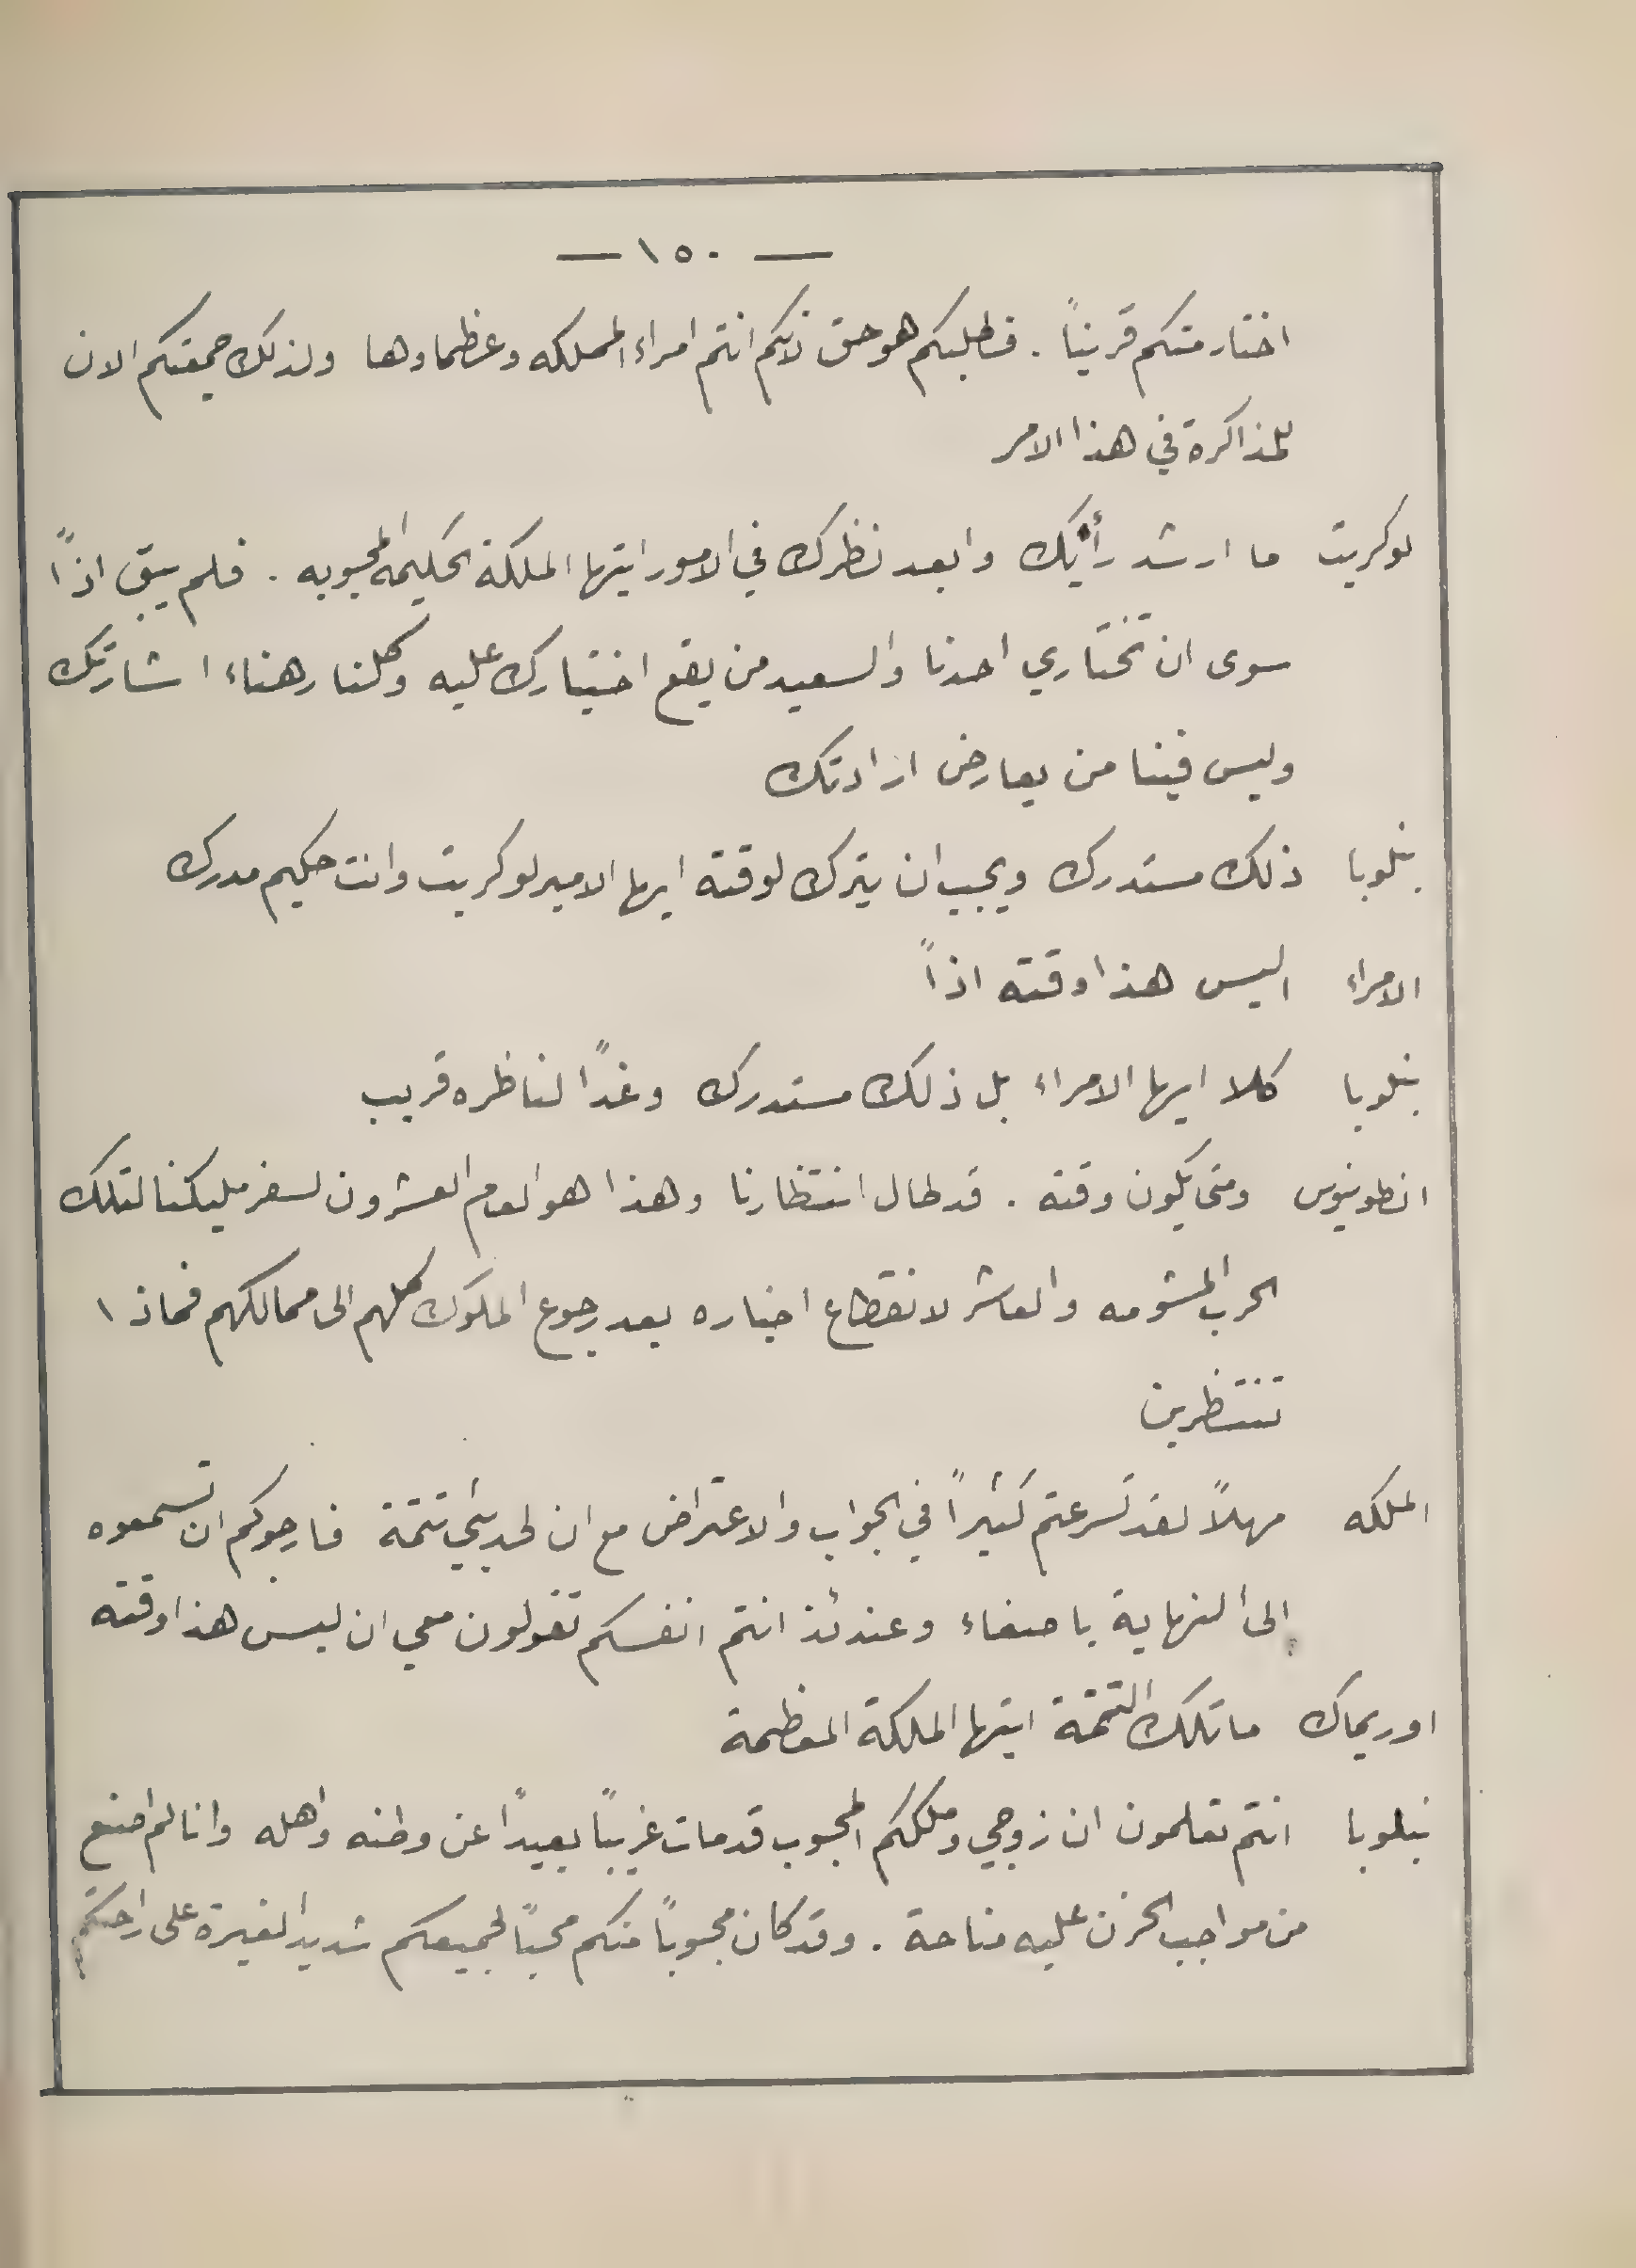 — ١٥٠ —
اختار منكم قريناً . فطلبكم هو حق لانكم انتم امراء المملكه وعظماوها ولذلك جمعتكم الان
للمذاكرة في هذا الامر
لوكريت ما ارشد رأيك وابعد نظرك في الامور ايتها الملكة الحكيمه المحبوبه . فلم يبق اذاً
سوى ان تختاري احدنا والسعيد من يقع اختيارك عليه وكلنا رهناء اشارتك
وليس فينا من يعارض ارادتك
بنلوبا ذلك مستدرك ويجب ان يترك لوقته ايها الامير لوكريت وانت حكيم مدرك
الامراء اليس هذا وقته اذاً
بنلوبا كلا ايها الامراء بل ذلك مستدرك وغداً لناظره قريب
انطونيوس ومتى يكون وقته . قد طال انتظارنا وهذا هو العام العشرون لسفر مليكنا لتلك
الحرب المشومه والعاشر لانقطاع اخباره بعد رجوع الملوك كلهم الى ممالكهم فماذا
تنتظرين
الملكه مهلاً لقد تسرعتم كثيراً في الجواب والاعتراض مع ان لحديثي تتمة فارجوكم ان تسمعوه
الى النهاية باصغاء وعندئذ انتم انفسكم تقولون معي ان ليس هذا وقته
اوريماك ما تلك التتمة ايتها الملكة المعظمة
بنلوبا انتم تعلمون ان زوجي وملككم المحبوب قد مات غريباً بعيداً عن وطنه واهله وانا لم اصنع
من مواجب الحزن عليه مناحة . وقد كان محبوباً منكم محباً لجميعكم شديد الغيرة على راحتكم